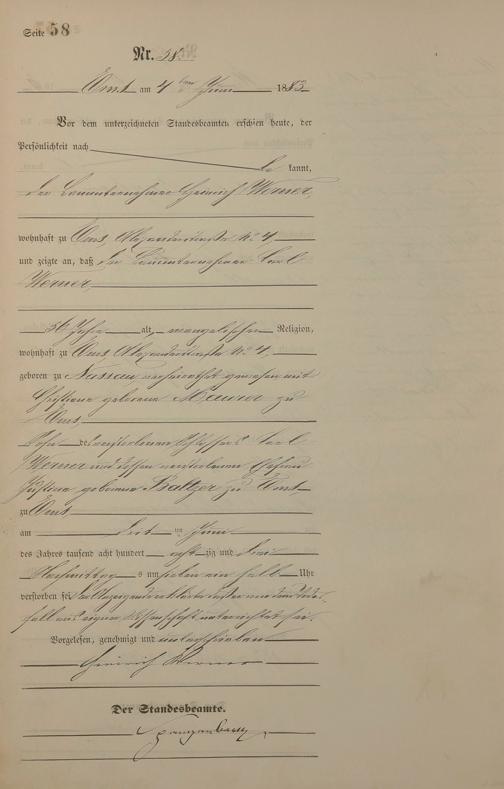 Seite 58
Nr. 58.
Ems am 4ten Juni 1883
Vor dem unterzeichneten Standesbeamten erschien heute, der
Persönlichkeit nach be kannt,
der Bauunternehmer Heinrich Werner,
wohnhaft zu Ems, Alexanderstraße No 4,
und zeigte an, daß der Bauunternehmer Carl
Werner,
56 Jahre alt, evangelischer Religion,
wohnhaft zu Ems, Alexanderstraße No 4,
geboren zu Nassau verheirathet gewesen mit
Christiane geborene Maurer zu
Ems,
Sohn des verstorbenen Schlossers Carl
Werner und dessen verstorbene Ehefrau
geborene Baltzer zu Ems
zu Ems
am ten Juni
des Jahres tausend acht hundert acht zig und drei
Nachmittags um sieben ein halb Uhr
verstorben sei
fall aus eigener Wissenschaft unterrichtet sei.
Vorgelesen, genehmigt und unterschrieben
Heinrich Werner
Der Standesbeamte.
Spangenberg